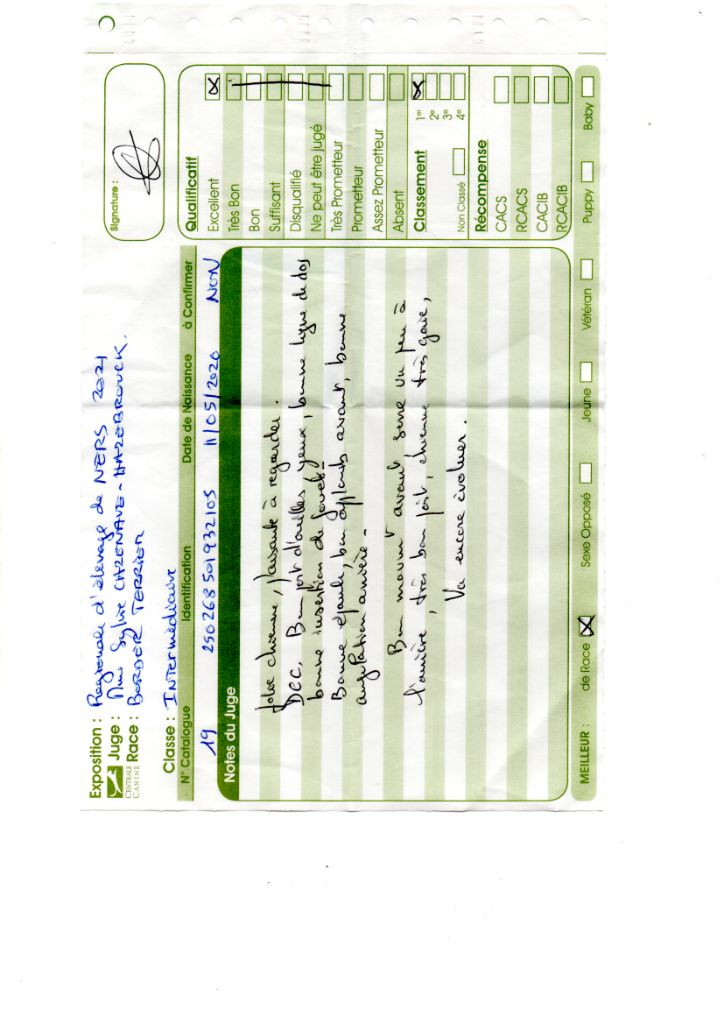 Exposition : Régionale d'élevage de NERS 2021
Juge : Mme Sylvie CAZENAVE-HAZEBROUCK
CENTRALE CANINE
Race : BORDER TERRIER
Classe : INTERMÉDIAIRE
N° Catalogue Identification Date de Naissance à Confirmer
19 250268501932105 11/05/2020 NON
Notes du Juge
Jolie chienne, plaisante à regarder.
DCC. Bon port d'oreilles, yeux, bonne ligne de dos
bonne insertion de fouet-
Bonne épaule, bon aplombs avant, bonne
angulation arrière-
Bon mouvmt avant, serre un peu à
l'arrière, très bon port, chienne très gaie,
Va encore évoluer.
Signature :
Qualificatif
Excellent X
Très Bon
Bon
Suffisant
Disqualifié
Ne peut être jugé
Très Prometteur
Prometteur
Assez Prometteur
Absent
Classement 1er X
2e
3e
4e
Non Classé
Récompense
CACS
RCACS
CACIB
RCACIB
MEILLEUR : de Race X Sexe Opposé Jeune Vétéran Puppy Baby